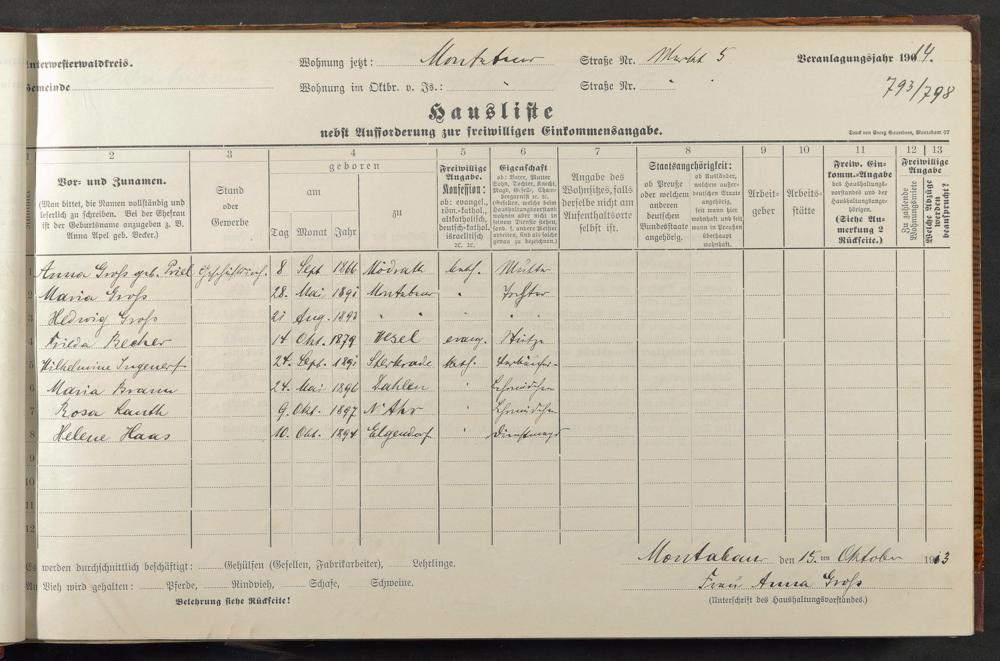 Unterwesterwaldkreis. Wohnung jetzt: Montabaur Straße Nr. Markt 5 Veranlagungsjahr 1914.
Gemeinde Wohnung im Oktbr. v. Js.: " Straße Nr. " 793/798
Hausliste
nebst Aufforderung zur freiwilligen Einkommensangabe.
Druck von Georg Sauerborn, Montabaur 07
1 2 3 4 5 6 7 8 9 10 11 12 13
Vor- und Zunamen.
(Man bittet, die Namen vollständig und
leserlich zu schreiben. Bei der Ehefrau
ist der Geburtsname anzugeben z. B.
Anna Apel geb. Becker.)
Stand
oder
Gewerbe
geboren
am
Tag Monat Jahr
zu
Freiwillige
Angabe.
Konfession:
ob: evangel.,
röm.-kathol.,
altkatholisch,
deutsch-kathol.
israelitisch
ec. ec.
Eigenschaft
ob: Vater, Mutter
Sohn, Tochter, Knecht,
Magd, Geselle, Cham-
bregarnist ec. ec.
(Gesellen, welche beim
Haushaltungsvorstand
wohnen aber nicht in
seinem Dienste stehen,
sond. f. andere Meister
arbeiten, sind als solche
genau zu bezeichnen.)
Angabe des
Wohnsitzes, falls
derselbe nicht am
Aufenthaltsorte
selbst ist.
Staatsangehörigkeit:
ob Preuße
oder welchem
anderen
deutschen
Bundesstaate
angehörig.
ob Ausländer,
welchem außer-
deutschen Staate
angehörig,
seit wann hier
wohnhaft und seit
wann in Preußen
überhaupt
wohnhaft.
Arbeit-
geber
Arbeits-
stätte
Freiw. Ein-
komm.-Angabe
des Haushaltungs-
vorstandes und der
Haushaltungsange-
hörigen.
(Siehe An-
merkung 2
Rückseite.)
Freiwillige
Angabe
Zu zahlende
Wohnungsmiete
Welche Abzüge
werden
beansprucht?
1 Anna Groß geb. Priel 8 Sept 1866 Mödrath kath. Mutter
2 Maria Groß 28. Mai 1891 Montabaur " Tochter
3 Hedwig Groß 21 Aug. 1893 " " " "
4 Frieda Becher 14 Okt. 1879 Wesel evang. Stütze
5 Wilhelmine 24. Sept. 1891 Sterkrade kath.
6 Maria Braun 24. Mai 1896 Dahlen " Lehrmädchen
7 Rosa Lauth 9. Okt. 1897 N. Ahr " Lehrmädchen
8 Helene Haas 10. Okt. 1894 Elgendorf " Dienstmagd
9
10
11
12
Es werden durchschnittlich beschäftigt: Gehülfen (Gesellen, Fabrikarbeiter), Lehrlinge.
An Vieh wird gehalten: Pferde, Rindvieh, Schafe, Schweine.
Belehrung siehe Rückseite!
Montabaur den 15. ten Oktober 1913
Frau Anna Groß
(Unterschrift des Haushaltungsvorstandes.)